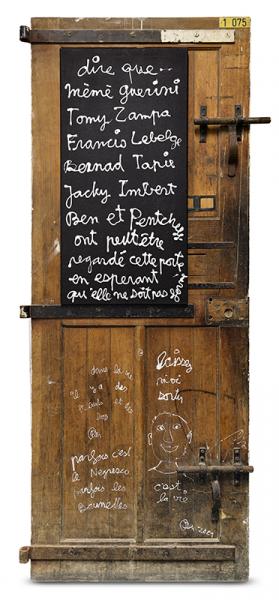 1 075
dire que...
mémé guerini
Tomy Zampa
Francis Lebelge
Bernad Tapie
Jacky Imbert
Ben et Pentcheff
ont peut être
regardé cette porte
en esperant
qu'elle ne soit pas
dans la vie
il y a des
et les
Ben
parfois c'est
le Negresco
parfois les
Baumettes
laissez
moi
sortir
c'est
la vie
Ben